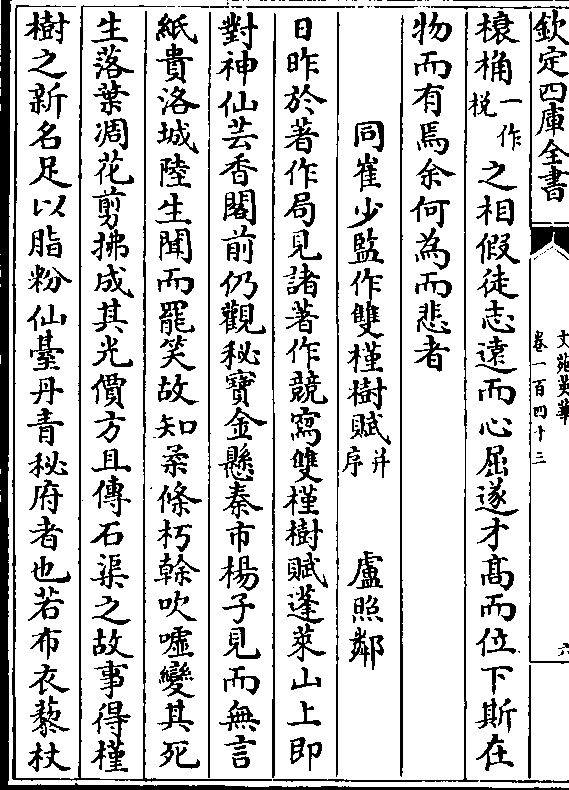 欽定四庫全書
文苑英華
卷一百四十三
六
榱桷一作梲之相假徒志遠而心屈遂才髙而位下斯在
物而有焉余何為而悲者
同崔少監作雙槿樹賦并序 盧照鄰
日昨於著作局見諸著作競寫雙槿樹賦蓬萊山上即
對神仙芸香閣前仍觀秘寶金懸秦市楊子見而無言
紙貴洛城陸生聞而罷笑故知柔條朽榦吹嘘變其死
生落葉凋花剪拂成其光價方且傳石渠之故事得槿
樹之新名足以脂粉仙臺丹青秘府者也若布衣藜杖